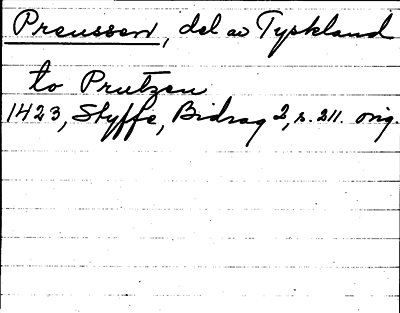 Preussen, del av Tyskland
to Prutzen
1423, Styffe, Bidrag 2, s. 211. orig.